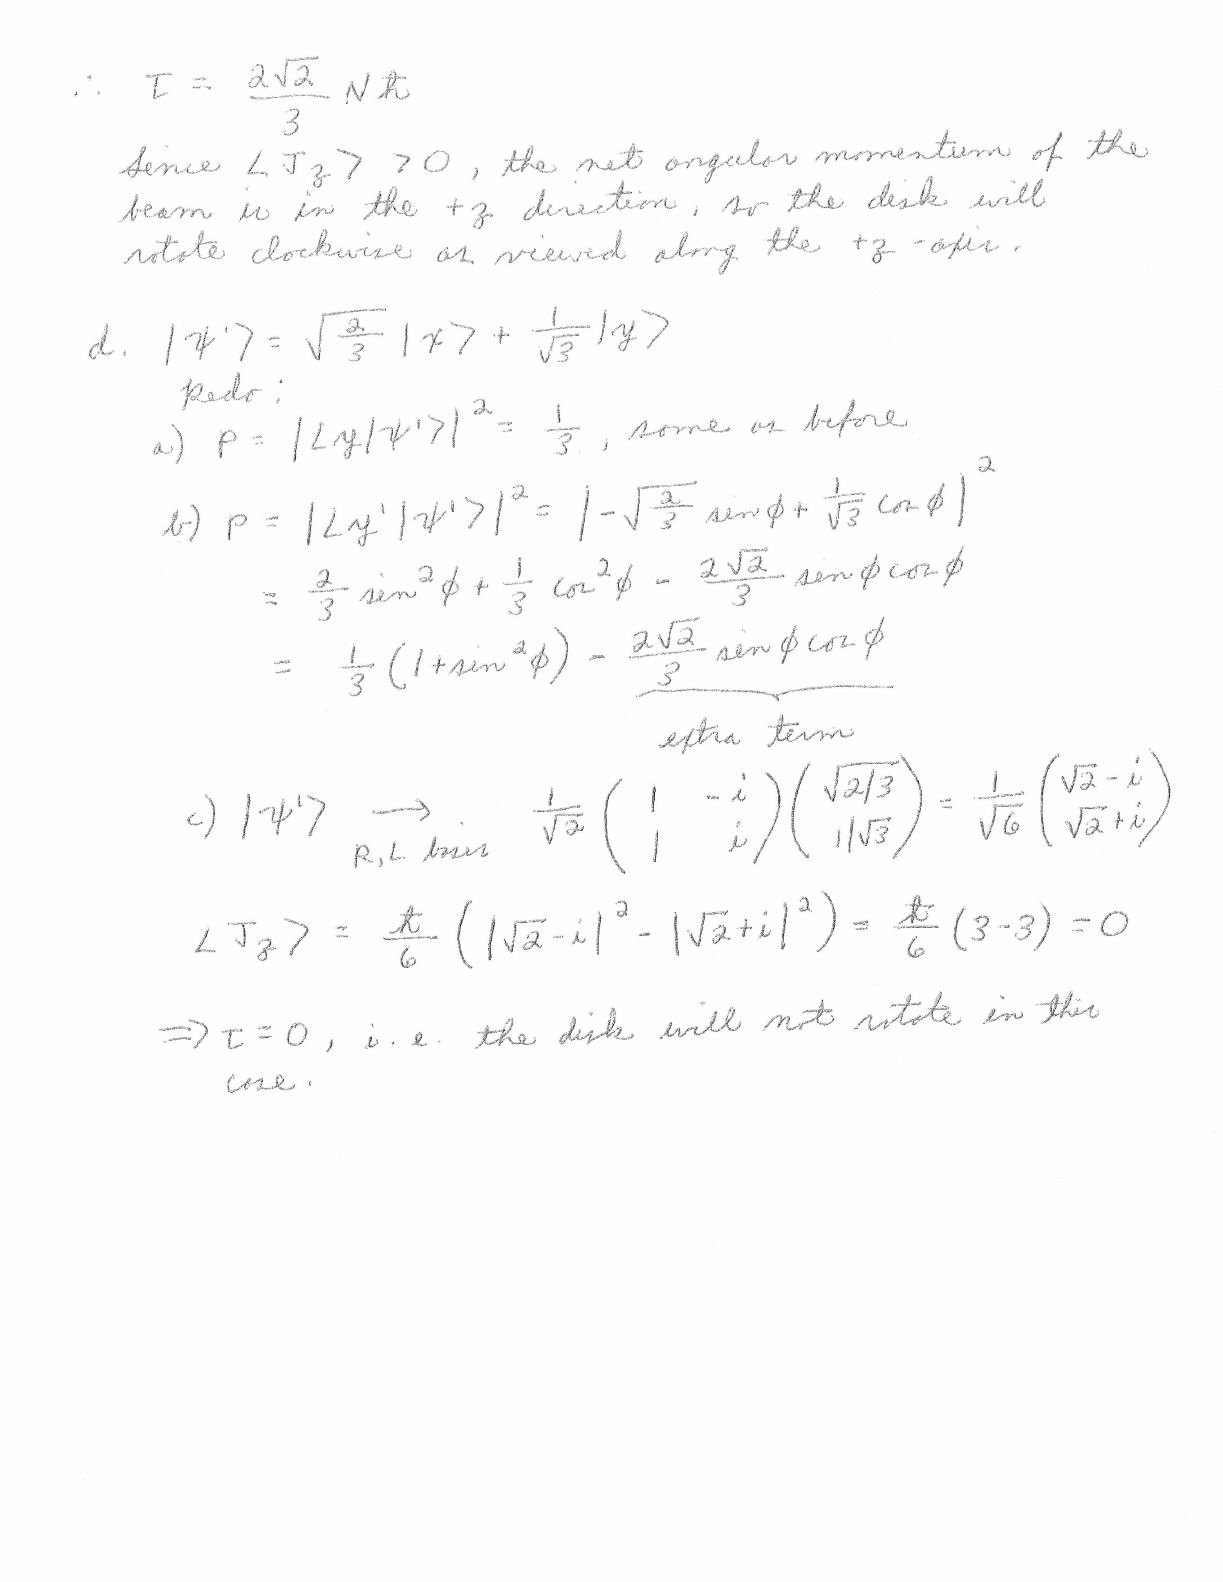 ∴ τ = 2√2/3 Nħ
Since <J_z> > 0, the net angular momentum of the
beam is in the +z direction, so the disk will
rotate clockwise as viewed along the +z-axis.
d. |ψ'> = √(2/3) |x> + 1/√3 |y>
Redo:
a) P = |<y|ψ'>|² = 1/3, same as before
b) P = |<y'|ψ'>|² = |-√(2/3) sin φ + 1/√3 cos φ|²
= 2/3 sin²φ + 1/3 cos²φ - 2√2/3 sin φ cos φ
= 1/3 (1 + sin²φ) - 2√2/3 sin φ cos φ
extra term
c) |ψ'> → R,L basis 1/√2 (1 -i; 1 i) (√2/3; 1/√3) = 1/√6 (√2 - i; √2 + i)
<J_z> = ħ/6 (|√2 - i|² - |√2 + i|²) = ħ/6 (3-3) = 0
⇒ τ = 0, i.e. the disk will not rotate in this
case.